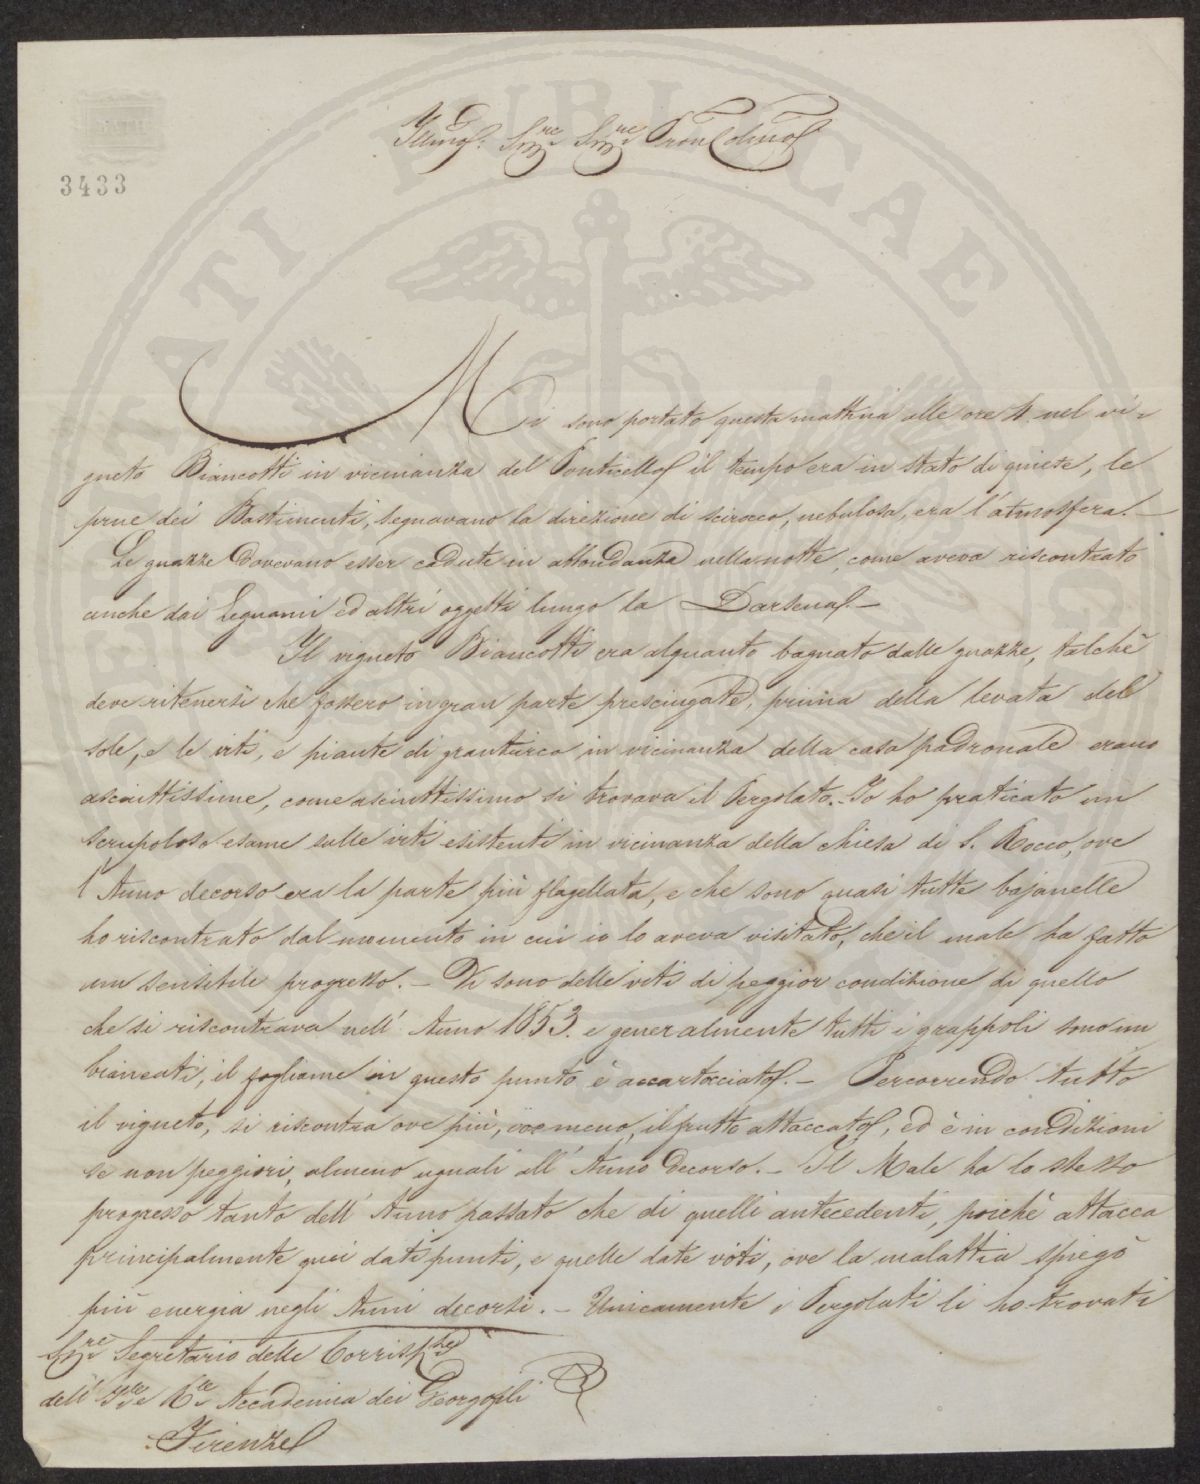 3433
Illmo. Sigre Sigre Pron Colmo
Mi sono portato questa mattina alle ore 4. nel vi=
gneto Biancotti in vicinanza del Ponticello il tempo era in stato di quiete, le
prue dei Bastimenti, segnavano la direzione di scirocco, nebulosa, era l'atmosfera. —
Le guazze dovevano esser cadute in abbondanza nella notte, come aveva riscontrato
anche dai Legnami ed altri oggetti lungo la Darsena. —
Il vigneto Biancotti era alquanto bagnato dalle guazze, talchè
deve ritenersi che fossero in gran parte presciugate, prima della levata del
sole, e le viti, e piante di granturco in vicinanza della casa padronale erano
asciuttissime, come asciuttissimo si trovava il Pergolato. Io ho praticato un
scrupoloso esame sulle viti esistenti in vicinanza della chiesa di S. Rocco, ove
l'Anno decorso era la parte più flagellata, e che sono quasi tutte bajanelle
ho riscontrato dal momento in cui io lo aveva visitato, che il male ha fatto
un sensibile progresso. — Vi sono delle viti di peggior condizione di quello
che si riscontrava nell' Anno 1853. e generalmente tutti i grappoli sono im
biancati, il fogliame in questo punto è accartocciato. — Percorrendo tutto
il vigneto, si riscontra ove più, ove meno, il frutto attaccato, ed è in condizioni
se non peggiori, almeno uguali all' Anno decorso. — Il Male ha lo stesso
progresso tanto dell' Anno passato che di quelli antecedenti, poichè attacca
principalmente quei dati punti, e quelle date viti, ove la malattia spiegò
più energia negli Anni decorsi. — Unicamente i Pergolati li ho trovati
Sigre Segretario delle Corrispze
dell' I. e R. Accademia dei Georgofili
Firenze